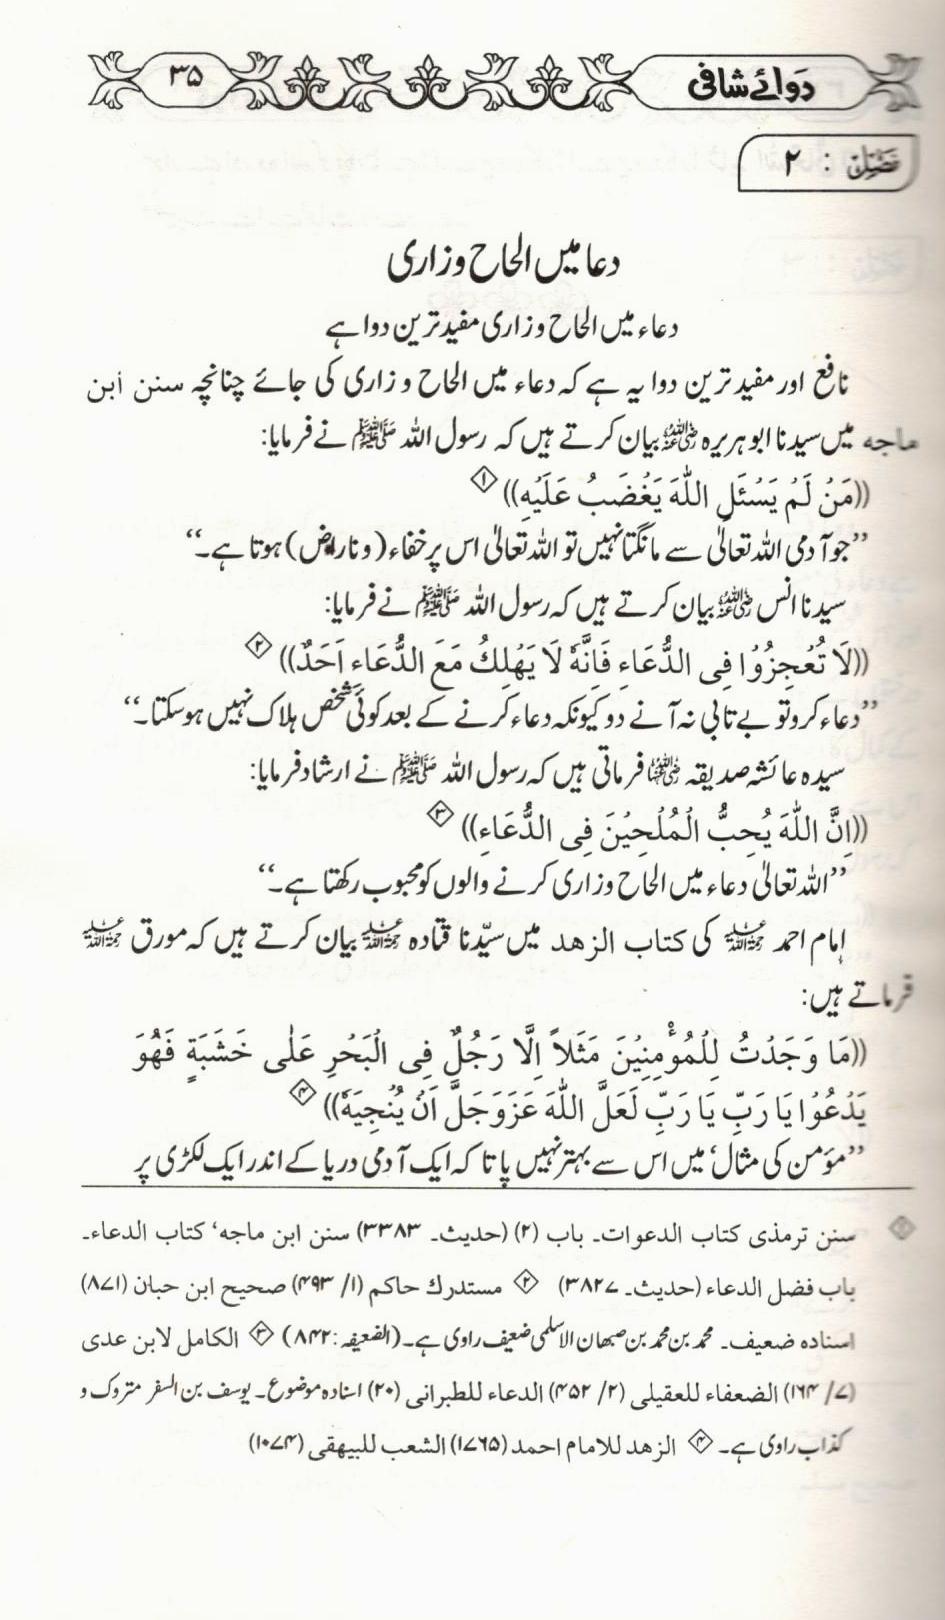 دَوائے شافی ۳۵
فصل : ۲
دعا میں الحاح و زاری
دعاء میں الحاح و زاری مفید ترین دوا ہے
نافع اور مفید ترین دوا یہ ہے کہ دعاء میں الحاح و زاری کی جائے چنانچہ سنن ابن
ماجه میں سیدنا ابوہریرہ رضی اللہ عنہ بیان کرتے ہیں کہ رسول اللہ ﷺ نے فرمایا:
((مَنْ لَمْ يَسْئَلِ اللّٰهَ يَغْضَبُ عَلَيْهِ)) ۱
’’جو آدمی اللہ تعالیٰ سے مانگتا نہیں تو اللہ تعالیٰ اس پر خفاء (و ناراض) ہوتا ہے۔‘‘
سیدنا انس رضی اللہ عنہ بیان کرتے ہیں کہ رسول اللہ ﷺ نے فرمایا:
((لَا تُعْجِزُوْا فِى الدُّعَاءِ فَاِنَّهٗ لَا يَهْلِكُ مَعَ الدُّعَاء اَحَدٌ)) ۲
’’دعاء کرو تو بے تابی نہ آنے دو کیونکہ دعاء کرنے کے بعد کوئی شخص ہلاک نہیں ہو سکتا۔‘‘
سیدہ عائشہ صدیقہ رضی اللہ عنہا فرماتی ہیں کہ رسول اللہ ﷺ نے ارشاد فرمایا:
((اِنَّ اللّٰهَ يُحِبُّ الْمُلْحِيْنَ فِى الدُّعَاءِ)) ۳
’’اللہ تعالیٰ دعاء میں الحاح و زاری کرنے والوں کو محبوب رکھتا ہے۔‘‘
امام احمد رحمۃ اللہ علیہ کی کتاب الزهد میں سیّدنا قتادہ رحمۃ اللہ علیہ بیان کرتے ہیں کہ مورق رحمۃ اللہ علیہ
فرماتے ہیں:
((مَا وَجَدْتُ لِلْمُؤْمِنِيْنَ مَثَلاً اِلَّا رَجُلٌ فِى الْبَحْرِ عَلٰى خَشَبَةٍ فَهُوَ
يَدْعُوْا يَا رَبِّ يَا رَبِّ لَعَلَّ اللّٰهَ عَزَوَجَلَّ اَنْ يُنْجِيَهٗ)) ۴
’’مؤمن کی مثال‘ میں اس سے بہتر نہیں پاتا کہ ایک آدمی دریا کے اندر ایک لکڑی پر
۱ سنن ترمذی کتاب الدعوات۔ باب (۲) (حدیث۔ ۳۳۸۳) سنن ابن ماجه‘ کتاب الدعاء۔
باب فضل الدعاء (حدیث۔ ۳۸۲۷) ۲ مستدرك حاکم (۱/ ۴۹۳) صحیح ابن حبان (۸۷۱)
اسناده ضعیف۔ محمد بن محمد بن صبھان الاسلمی ضعیف راوی ہے۔ (الضعیفہ: ۸۴۲) ۳ الکامل لابن عدی
(۷/ ۱۶۴) الضعفاء للعقیلی (۲/ ۴۵۲) الدعاء للطبرانی (۲۰) اسنادہ موضوع۔ یوسف بن السفر متروک و
کذاب راوی ہے۔ ۴ الزهد للامام احمد (۱۷۶۵) الشعب للبیهقی (۱۰۷۴)